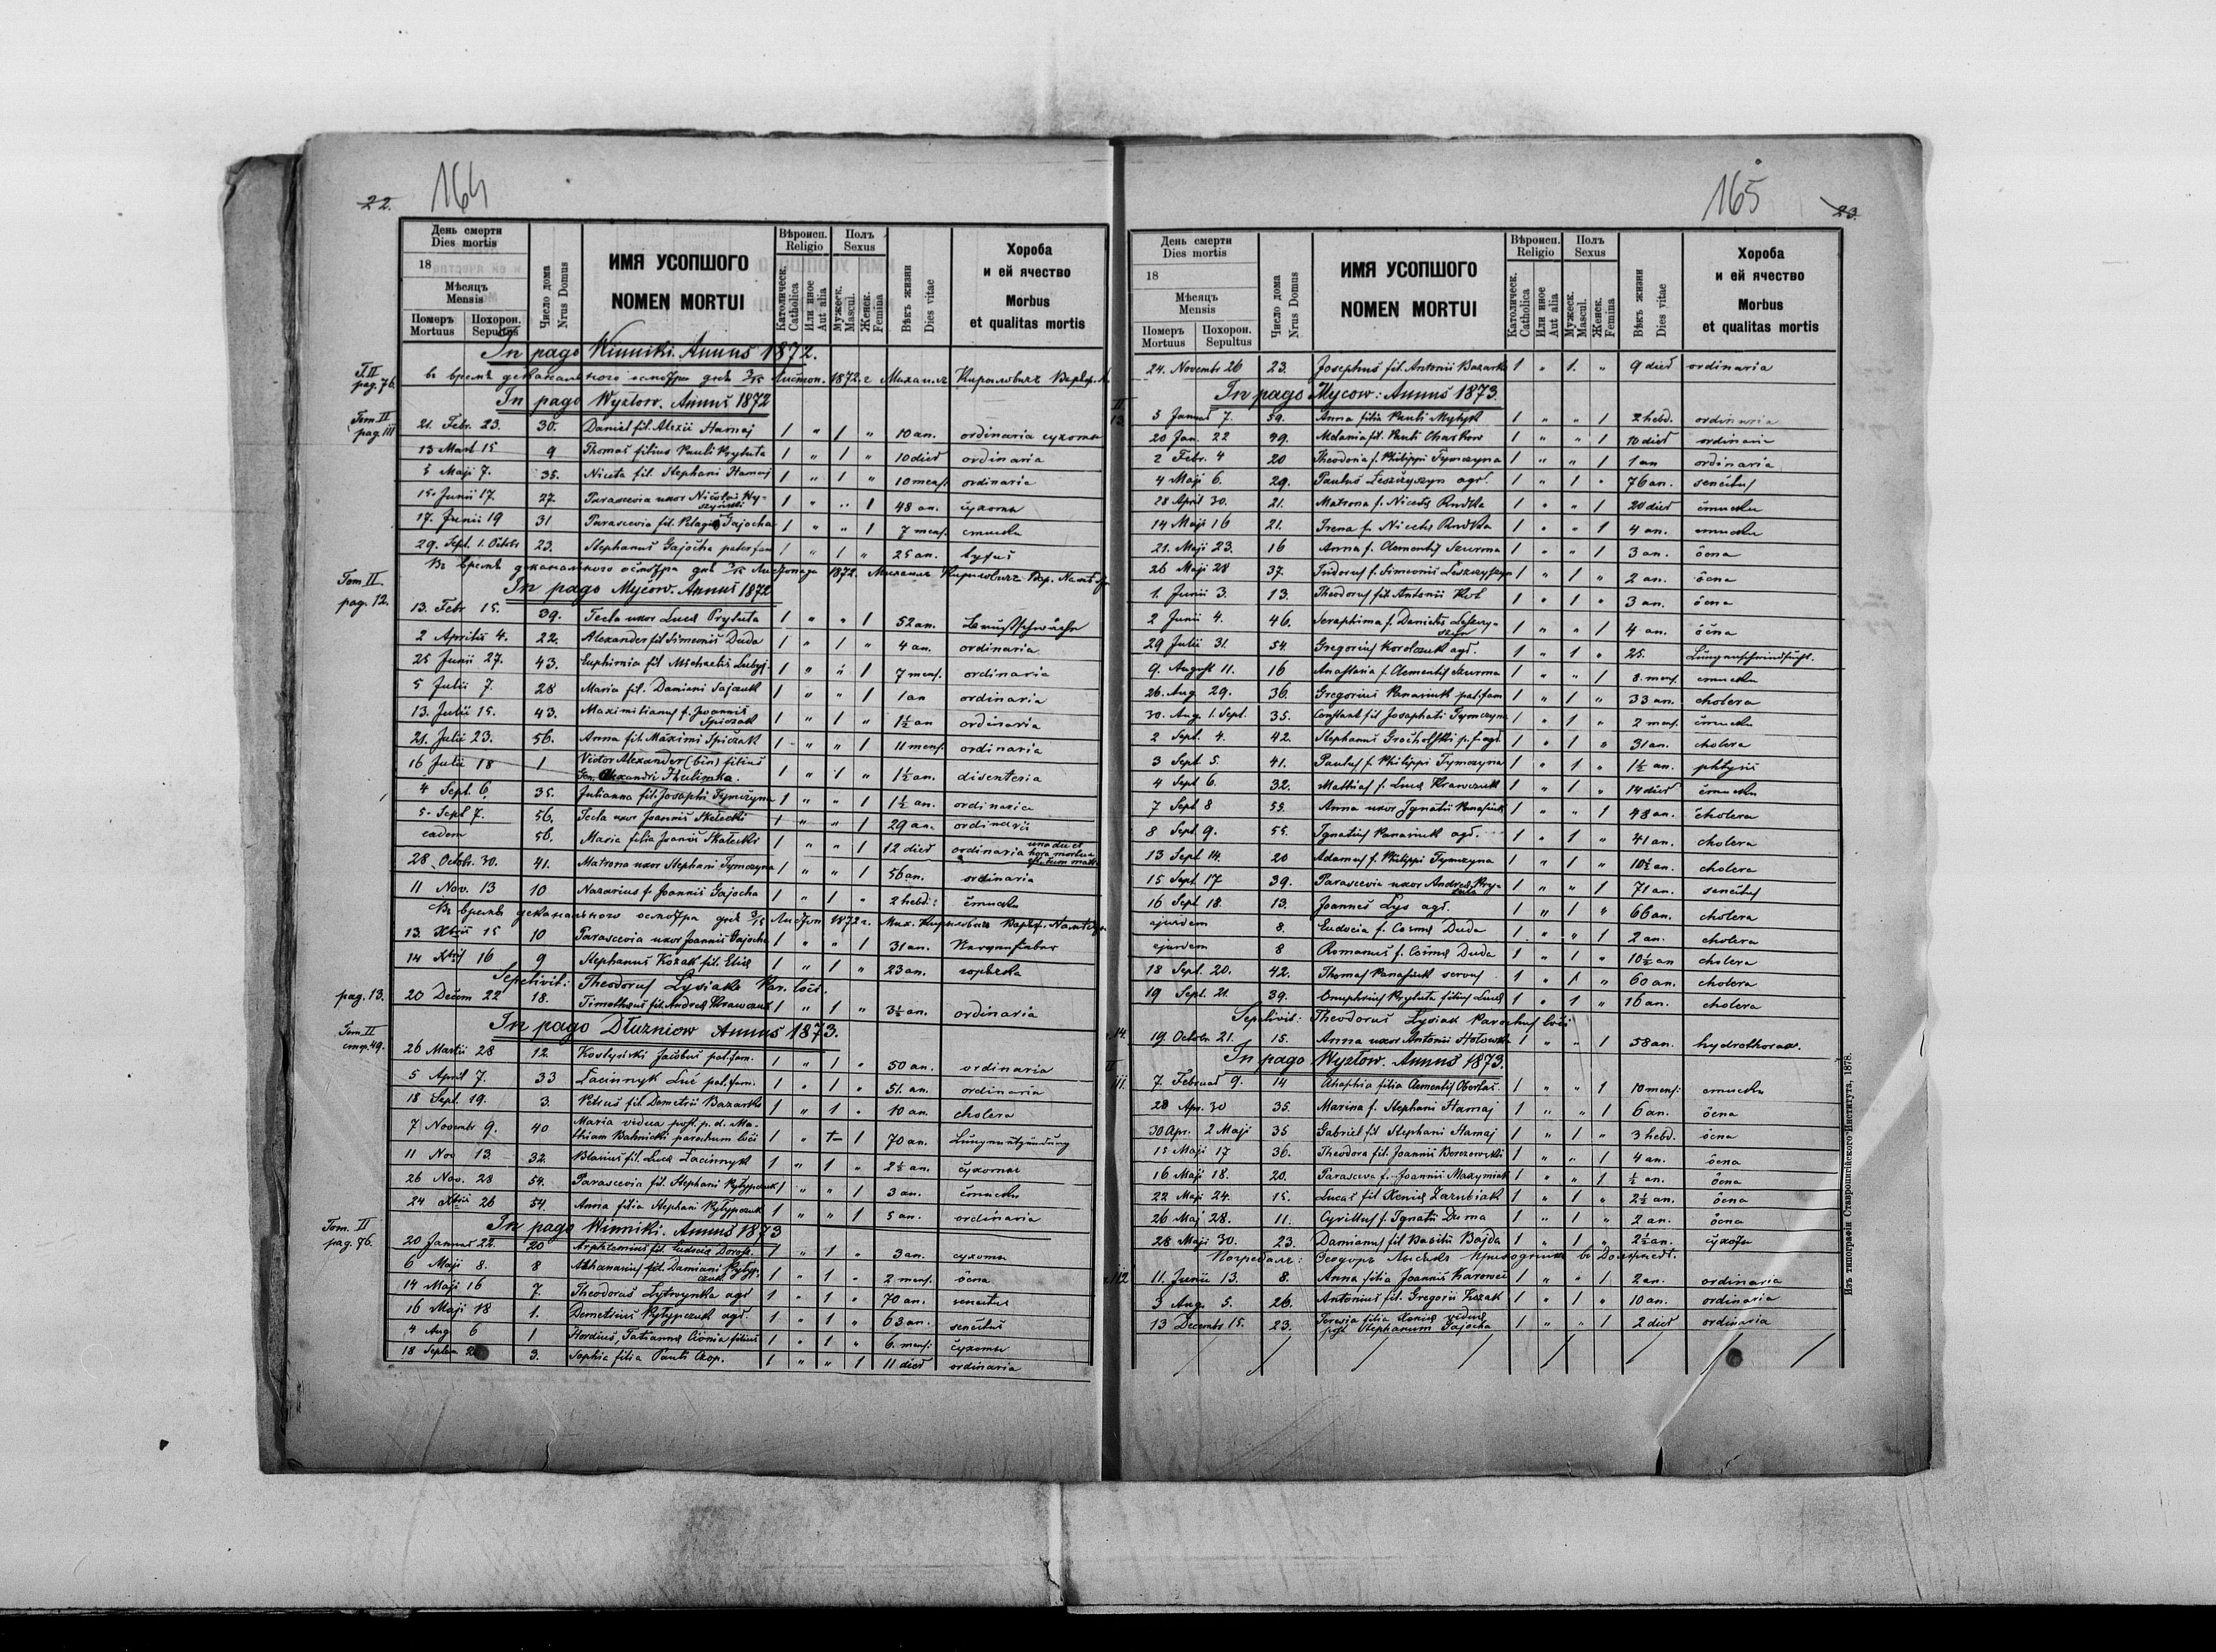 22.
164
День смерти
Dies mortis
18
Мѣсяцъ
Mensis
Померъ
Mortuus
Похорон.
Sepultus
Число дома
Nrus Domus
ИМЯ УСОПШОГО
NOMEN MORTUI
Вѣроисп.
Religio
Католическ.
Catholica
Или иное
Aut alia
Полъ
Sexus
Мужеск.
Mascul.
Женск.
Femina
Вѣкъ жизни
Dies vitae
Хороба
и ей ячество
Morbus
et qualitas mortis
In pago Winniki. Annus 1872.
T. II pag. 76.
In pago Wyzlow. Annus 1872
Tom II pag. 111
21. Febr. 23. 30. Daniel fil. Alexii Hamaj 1 " 1 " 10 an. ordinaria сухоты
13 Mart 15 9 Thomas filius Pauli Prytuta 1 " 1 " 10 dies ordinaria
5 Maji 7. 35. Niceta fil. Stephani Hamaj 1 " 1 " 10 mens. ordinaria
15. Junii 17. 27. Parascevia uxor Nicolai 1 " " 1 48 an. сухоты
17. Junii 19 31 Parascevia fil. Pelagiæ Gajocha 1 " " 1 7 mens.
29. Sept. 1. Octobr 23. Stephanus Gajocha pater fam 1 " 1 " 25 an. tyfus
Tom. II. pag. 12.
In pago Mycow. Annus 1872
13. Febr 15. 39. Tecla uxor Lucæ Prytuta 1 " " 1 52 an.
2 Aprilis 4. 22. Alexander fil Simeonis Duda 1 " 1 " 4 an. ordinaria
25 Junii 27. 43. Euphimia fil Michaelis 1 " " 1 7 mens. ordinaria
5 Julii 7. 28 Maria fil. Damiani 1 " " 1 1 an ordinaria
13. Julii 15. 43. Maximilianus f. Joannis Spiczak 1 " 1 " 1½ an ordinaria
21. Julii 23. 56. Anna fil. Maximi Spiczak 1 " " 1 11 mens. ordinaria
16 Julii 18 1 Victor Alexander (bin) filius
Alexandri 1 " 1 " 1½ an. disenteria
4 Sept. 6 35. Julianna fil. Josaphi Tymczyna 1 " " 1 1½ an. ordinaria
5. Sept 7. 56. Tecla uxor Joannis Skalecki 1 " " 1 29 an. ordinaria
eadem 56. Maria filia Joannis Skalecki 1 " " 1 12 dies ordinaria una die et hora mortua
28 Octobr. 30. 41. Matrona uxor Stephani Tymczyna 1 " " 1 56 an. ordinaria
11 Nov. 13 10 Nazarius f. Joannis Gajocha 1 " 1 " 2 hebd.
13. Xbris 15 10 Parascevia uxor Joannis Gajocha 1 " " 1 31 an. Nervenfieber
14 Xbris 16 9 Stephanus Kozak fil. Eliæ 1 " 1 " 23 an. горячка
Sepelivit: Theodorus Lysiak Par. loci.
pag. 13. 20 Decem 22 18. Timotheus fil. Andreæ Krawczuk 1 " 1 " 3½ an. ordinaria
In pago Dłużniow Annus 1873.
Tom II стор. 49.
26 Martii 28 12 Jacobus pat. fam. 1 " 1 " 50 an. ordinaria
5 April 7. 33 Łacinnyk Luc pat. fam. 1 " 1 " 51. an. ordinaria
18 Sept. 19. 3. Petrus fil Demetrii Bazarko 1 " 1 " 10 an. cholera
7 Novembr 9. 40 Maria vidua post. p. d. Ma-
thiam Bahnicki parochum loci 1 " 1 70 an. Lungenentzündung
11 Nov 13 32. Blasius fil. Lucæ Łacinnyk 1 " 1 " 2½ an. сухоты
26 Nov. 28 54. Parascevia fil. Stephani Pyłypczuk 1 " " 1 3 an.
24 Xbris 26 54. Anna filia Stephani Pyłypczuk 1 " " 1 5 an. ordinaria
In pago Winniki. Annus 1873
Tom. II pag. 76.
20 Januar 22. 20 fil. Eudociæ 1 " 1 " 3 an. сухоты
6 Maji 8. 8 Athanasius fil. Damiani Pyłyp-
czuk 1 " 1 " 2 mens. оспа
14 Maji 16 7. Theodorus Lytwynka agr. 1 " 1 " 70 an. senectus
16 Maji 18 1. Demetrius Pyłypczuk agr. 1 " 1 " 63 an. senectus
4 Aug 6 1 Tatiannæ filius 1 " 1 " 6. mens: сухоты
18 Septbr 3. Sophia filia Pauli 1 " " 1 11 dies ordinaria
165
23.
День смерти
Dies mortis
18
Мѣсяцъ
Mensis
Померъ
Mortuus
Похорон.
Sepultus
Число дома
Nrus Domus
ИМЯ УСОПШОГО
NOMEN MORTUI
Вѣроисп.
Religio
Католическ.
Catholica
Или иное
Aut alia
Полъ
Sexus
Мужеск.
Mascul.
Женск.
Femina
Вѣкъ жизни
Dies vitae
Хороба
и ей ячество
Morbus
et qualitas mortis
24. Novembr 26 23. Josephus fil. Antonii Bazarko 1 " 1. " 9 dies ordinaria
In pago Mycow: Annus 1873.
5 Januar 7. 59. Anna filia Pauli 1 " " 1 2 hebd. ordinaria
20 Jan. 22 49. Melania fil. Pauli 1 " " 1 10 dies ordinaria
2 Febr. 4 20 Theodora f. Philippi Tymczyna 1 " " 1 1 an ordinaria
4 Maji 6. 29. Paulus Leszczyszyn agr. 1 " 1 " 76 an. senectus
28 April 30. 21. Matrona f. Nicetæ Rudka 1 " " 1 20 dies
14 Maji 16 21. Irena f. Nicetæ Rudka 1 " " 1 4 an.
21. Maji 23. 16 Anna f. Clementis Szurma 1 " " 1 3 an. осna
26 Maji 28 37. Isidorus f. Simeonis Leszczyszyn 1 " 1 " 2 an. осna
1. Junii 3. 13. Theodorus fil. Antonii 1 " 1 " 3 an. осna
2 Junii 4. 46. Seraphima f. Danielis Leszczy-
szyn 1 " " 1 4 an. осna
29 Julii 31. 54. Gregorius Korolczuk agr. 1 " 1 " 25. Lungenschwindsucht.
9. August 11. 16 Anastasia f. Clementis Szurma 1 " " 1 8. mens.
26. Aug. 29. 36. Gregorius Panasiuk pat. fam 1 " 1 " 33 an. cholera
30. Aug. 1. Sept. 35. Constant fil Josaphati Tymczyna 1 " 1 " 2 mens.
2 Sept. 4. 42. Stephanus Grocholski p. f. agr. 1 " 1 " 31 an. cholera
3 Sept 5. 41. Paulus f. Philippi Tymczyna 1 " 1 " 1½ an. phtysis
4 Sept 6. 32. Mathias f. Lucæ Krawczuk 1 " 1 " 14 dies
7 Sept 8 55. Anna uxor Ignatii Panasiuk 1 " " 1 48 an. cholera
8 Sept 9. 55. Ignatius Panasiuk agr. 1 " 1 " 41 an. cholera
13 Sept 14. 20 Adamus f. Philippi Tymczyna 1 " 1 " 10½ an. cholera
15 Sept 17 39. Parascevia uxor Andreæ Pry-
tuta 1 " " 1 71 an. senectus
16 Sept 18. 13. Joannes Lys agr. 1 " 1 " 66 an. cholera
ejusdem 8. Eudocia f. Cosmæ Duda 1 " " 1 2 an. cholera
ejusdem 8 Romanus f. Cosmæ Duda 1 " 1 " 10½ an cholera
18 Sept. 20. 42. Thomas Panasiuk servus 1 " 1 " 60 an. cholera
19 Sept. 21. 39. Onuphrius Prytuta filius Lucæ 1 " 1 " 16 an. cholera
Sepelivit: Theodorus Lysiak Parochus loci
14. 19 Octobr. 21. 15. Anna uxor Antonii Hołowka 1 " " 1 58 an. hydrothorax.
In pago Wyzlow. Annus 1873.
II 111. 7. Februar 9. 14 Ahaphia filia Clementis 1 " " 1 10 mens:
28 Apr. 30 35. Marina f. Stephani Hamaj 1 " " 1 6 an. осna
30 Apr. 2 Maji 35 Gabriel fil Stephani Hamaj 1 " 1 " 3 hebd. осna
15 Maji 17 36. Theodora fil. Joannis Borczowski 1 " " 1 4 an. осna
16 Maji 18. 20. Parasceva f. Joannis Maxymiak 1 " " 1 ½ an. осna
22 Maji 24. 15. Lucas fil Xeniæ Zarubiak 1 " 1 " 2½ an. осna
26 Maj 28. 11. Cyrillus f. Ignatii Duma 1 " 1 " 2 an. осna
28 Maji 30. 23. Damianus fil Basilii Bajda 1 " 1 " 2½ an.
112 11. Junii 13. 8. Anna filia Joannis Karowec 1 " " 1 2 an. ordinaria
3 Aug. 5. 26. Antonius fil. Gregorii Kozak 1 " 1 " 10 an. ordinaria
13 Decembr 15. 23. Teresia filia Xeniæ viduæ
post Stephanum Gajocha 1 " " 1 2 dies ordinaria
Изъ типографіи Ставропигійского Института, 1878.